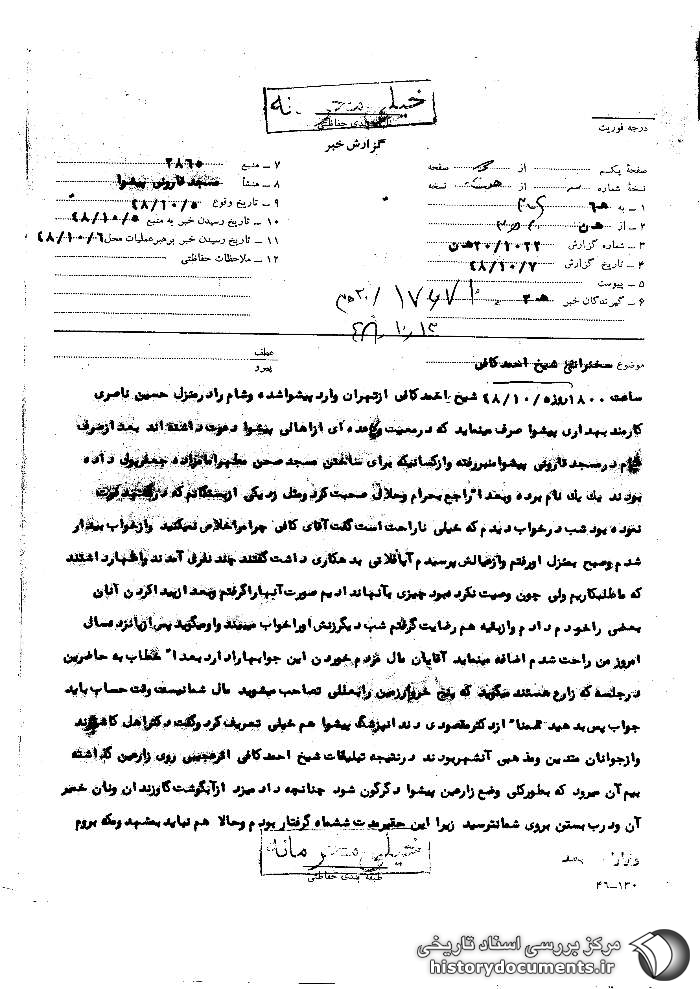 خیلی محرمانه
طبقه‌بندی حفاظتی
گزارش خبر
درجه فوریت
صفحهٔ یکم از صفحه
نسخهٔ شماره از نسخه
۱ ـ به
۲ ـ از
۳ ـ شماره گزارش ۲۰/۱۰۲۲ هـ‌ن
۴ ـ تاریخ گزارش ۴۸/۱۰/۷
۵ ـ پیوست
۶ ـ گیرندگان خبر
۷ ـ منبع ۲۸۶۵
۸ ـ منشأ مسجد قاروئی پیشوا
۹ ـ تاریخ وقوع ۴۸/۱۰/۵
۱۰ ـ تاریخ رسیدن خبر به منبع ۴۸/۱۰/۵
۱۱ ـ تاریخ رسیدن خبر برهبر عملیات محل ۴۸/۱۰/۶
۱۲ ـ ملاحظات حفاظتی
موضوع سخنرانی شیخ احمد کافی
عطف
پیرو
ساعت ۱۸۰۰ روز ۴۸/۱۰/۵ شیخ احمد کافی از تهران وارد پیشوا شده و شام را در منزل حسین ناصری
کارمند بهداری پیشوا صرف مینماید که در معیت وی عده ای از اهالی پیشوا دعوت داشته اند بعد از صرف
شام در مسجد قاروئی پیشوا منبر رفته و از کسانیکه برای ساختن مسجد صحن مطهر امامزاده جعفر پول داده
بودند یك یك نام برده و بعداً راجع بحرام و حلال صحبت کرد و مثل زد یکی از بستگانم که
نموده بود شب در خواب دیدم که خیلی ناراحت است گفت آقای کافی چرا مرا خلاص نمیکنید و از خواب بیدار
شدم و صبح بمنزل او رفتم و از عیالش پرسیدم آیا فلانی بدهکاری داشت گفتند چند نفری آمدند و اظهار داشتند
که ما طلبکاریم ولی چون وصیت نکرده بود چیزی بآنها نداده‌ایم صورت آنها را گرفتم و بعد از پیدا کردن آنان
بعضی را خودم دادم و از بقیه هم رضایت گرفتم شب دیگر زنش او را خواب میبیند و او میگوید پس از پانزده سالی
امروز من راحت شدم اضافه مینماید آقایان مال مردم خوردن این جوابها را دارد بعداً خطاب به حاضرین
در جلسه که زارع هستند میگوید که پنج خروار زمین را بمالی تصاحب میشوید مال شما نیست وقت حساب باید
جواب پس بدهید ضمناً از دکتر مقصودی دندانپزشگ پیشوا هم خیلی تعریف کرد و گفت دکتر اهل کاشمرند
و از جوانان متدین و مذهبی آنشهر بودند در نتیجه تبلیغات شیخ احمد کافی اثر عجیبی روی زارعین گذاشته
بیم آن میرود که بطور کلی وضع زارعین پیشوا دگرگون شود چنانچه داد میزد از آبگوشت گاوزندان و نان خمیر
آن و درب بستن بروی شما نترسید زیرا این حقیر مدت ششماه گرفتار بودم و حالا هم نباید بمشهد و مکه بروم
خیلی محرمانه
طبقه بندی حفاظتی
۴۶-۱۳۰
مرکز بررسی اسناد تاریخی
historydocuments.ir